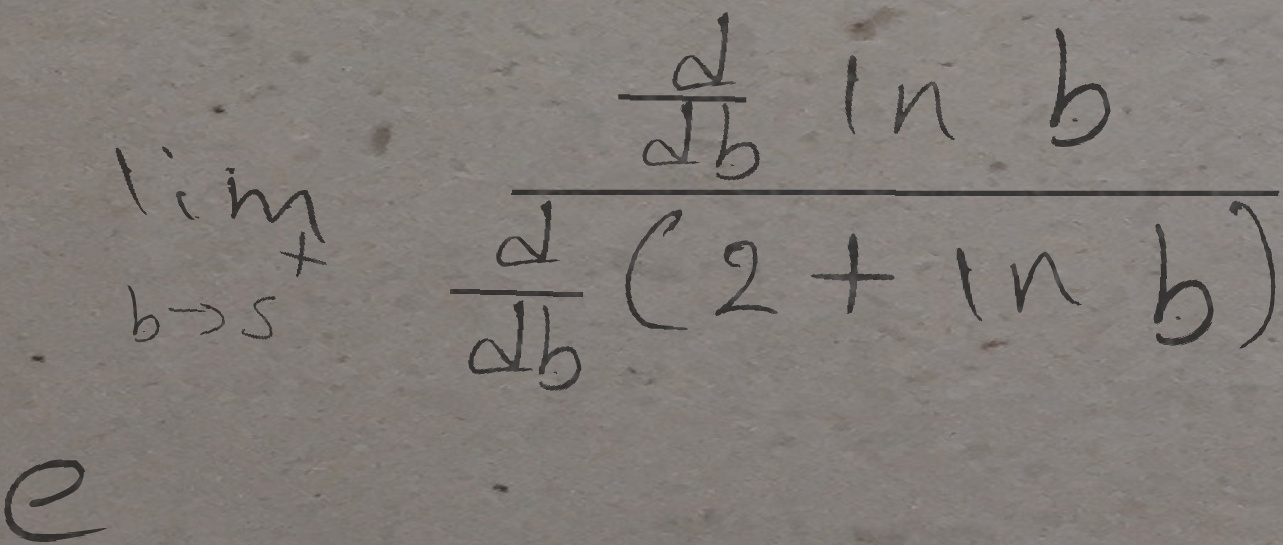 e^{\lim_{b \to s^{+}} \frac{\frac{d}{db} \ln b}{\frac{d}{db} (2 + \ln b)}}